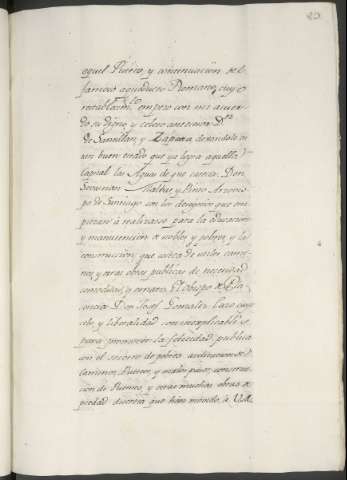 aquel Puerto, y continuacion del
famoso aqueducto Romano, cuyo
restablecim.to empezo con mi acuer-
do su digno, y celoso antecesor D.n
de Santillan, y Zapata dexandolo en
un buen estado que ya logra aquella
Capital las Aguas de que carecia. Don
Sevastian Malbar, y Pinto Arzovis-
po de Santiago con los designios que em-
pezaron á realizarse para la educacion
y manutencion de nobles y pobres, y la
construccion que costea de varios cami-
nos, y otras obras publicas de necesidad
comodidad, y ornato. El Obispo de Pla-
sencia D.n Josef Gonzalez Laso cuyo
celo, y liberalidad son inexplicables
para promover la felicidad publica
con el socorro de pobres, abilitacion de
Caminos, Puertos, y malos pasos, construc-
cion de Puentes, y otras muchas obras de
piedad discreta que han movido á V.M.